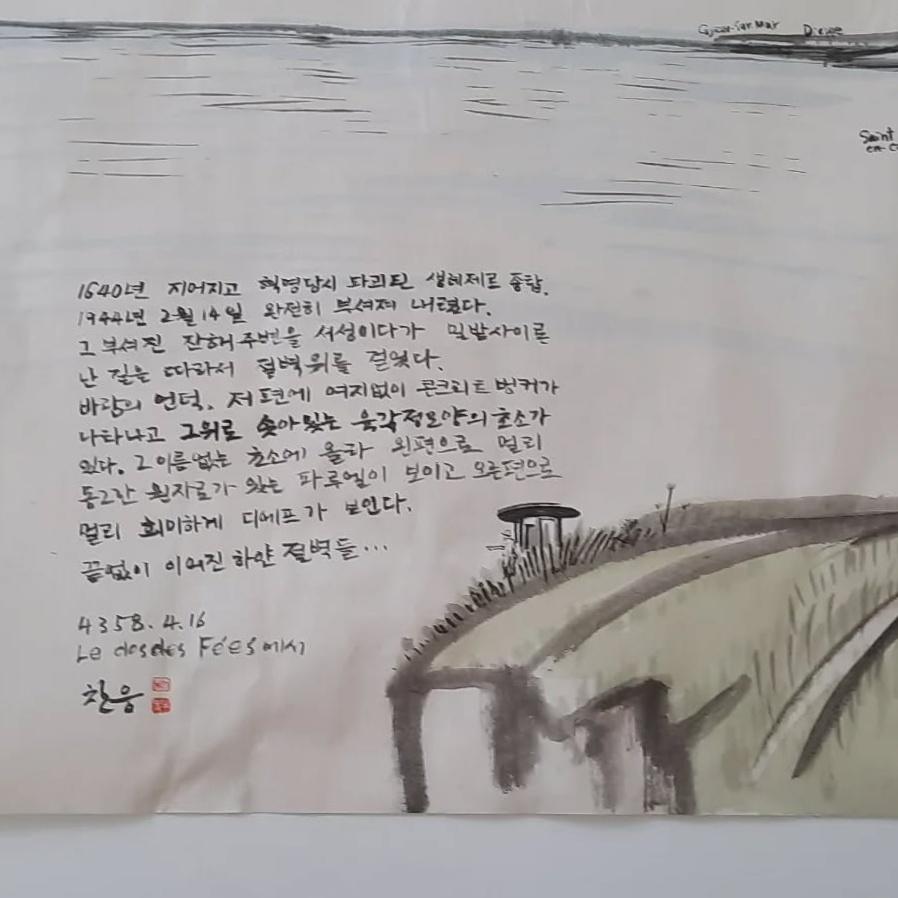 Dieppe
Saint
1640년 지어지고 혁명당시 파괴된 생떼제르 종합.
1944년 2월 14일 완전히 부셔져 내렸다.
그 부셔진 잔해 주변을 서성이다가 밀밭사이로
난 길을 따라서 절벽위를 걸었다.
바람의 언덕. 저편에 여지없이 콘크리트 벙커가
나타나고 그위로 솟아있는 육각정모양의 초소가
있다. 그 이름없는 초소에 올라 왼편으로 멀리
동그란 원자로가 있는 파루엘이 보이고 오른편으로
멀리 희미하게 디에프가 보인다.
끝없이 이어진 하얀 절벽들...
4358.4.16
Le des Fées에서
찬웅